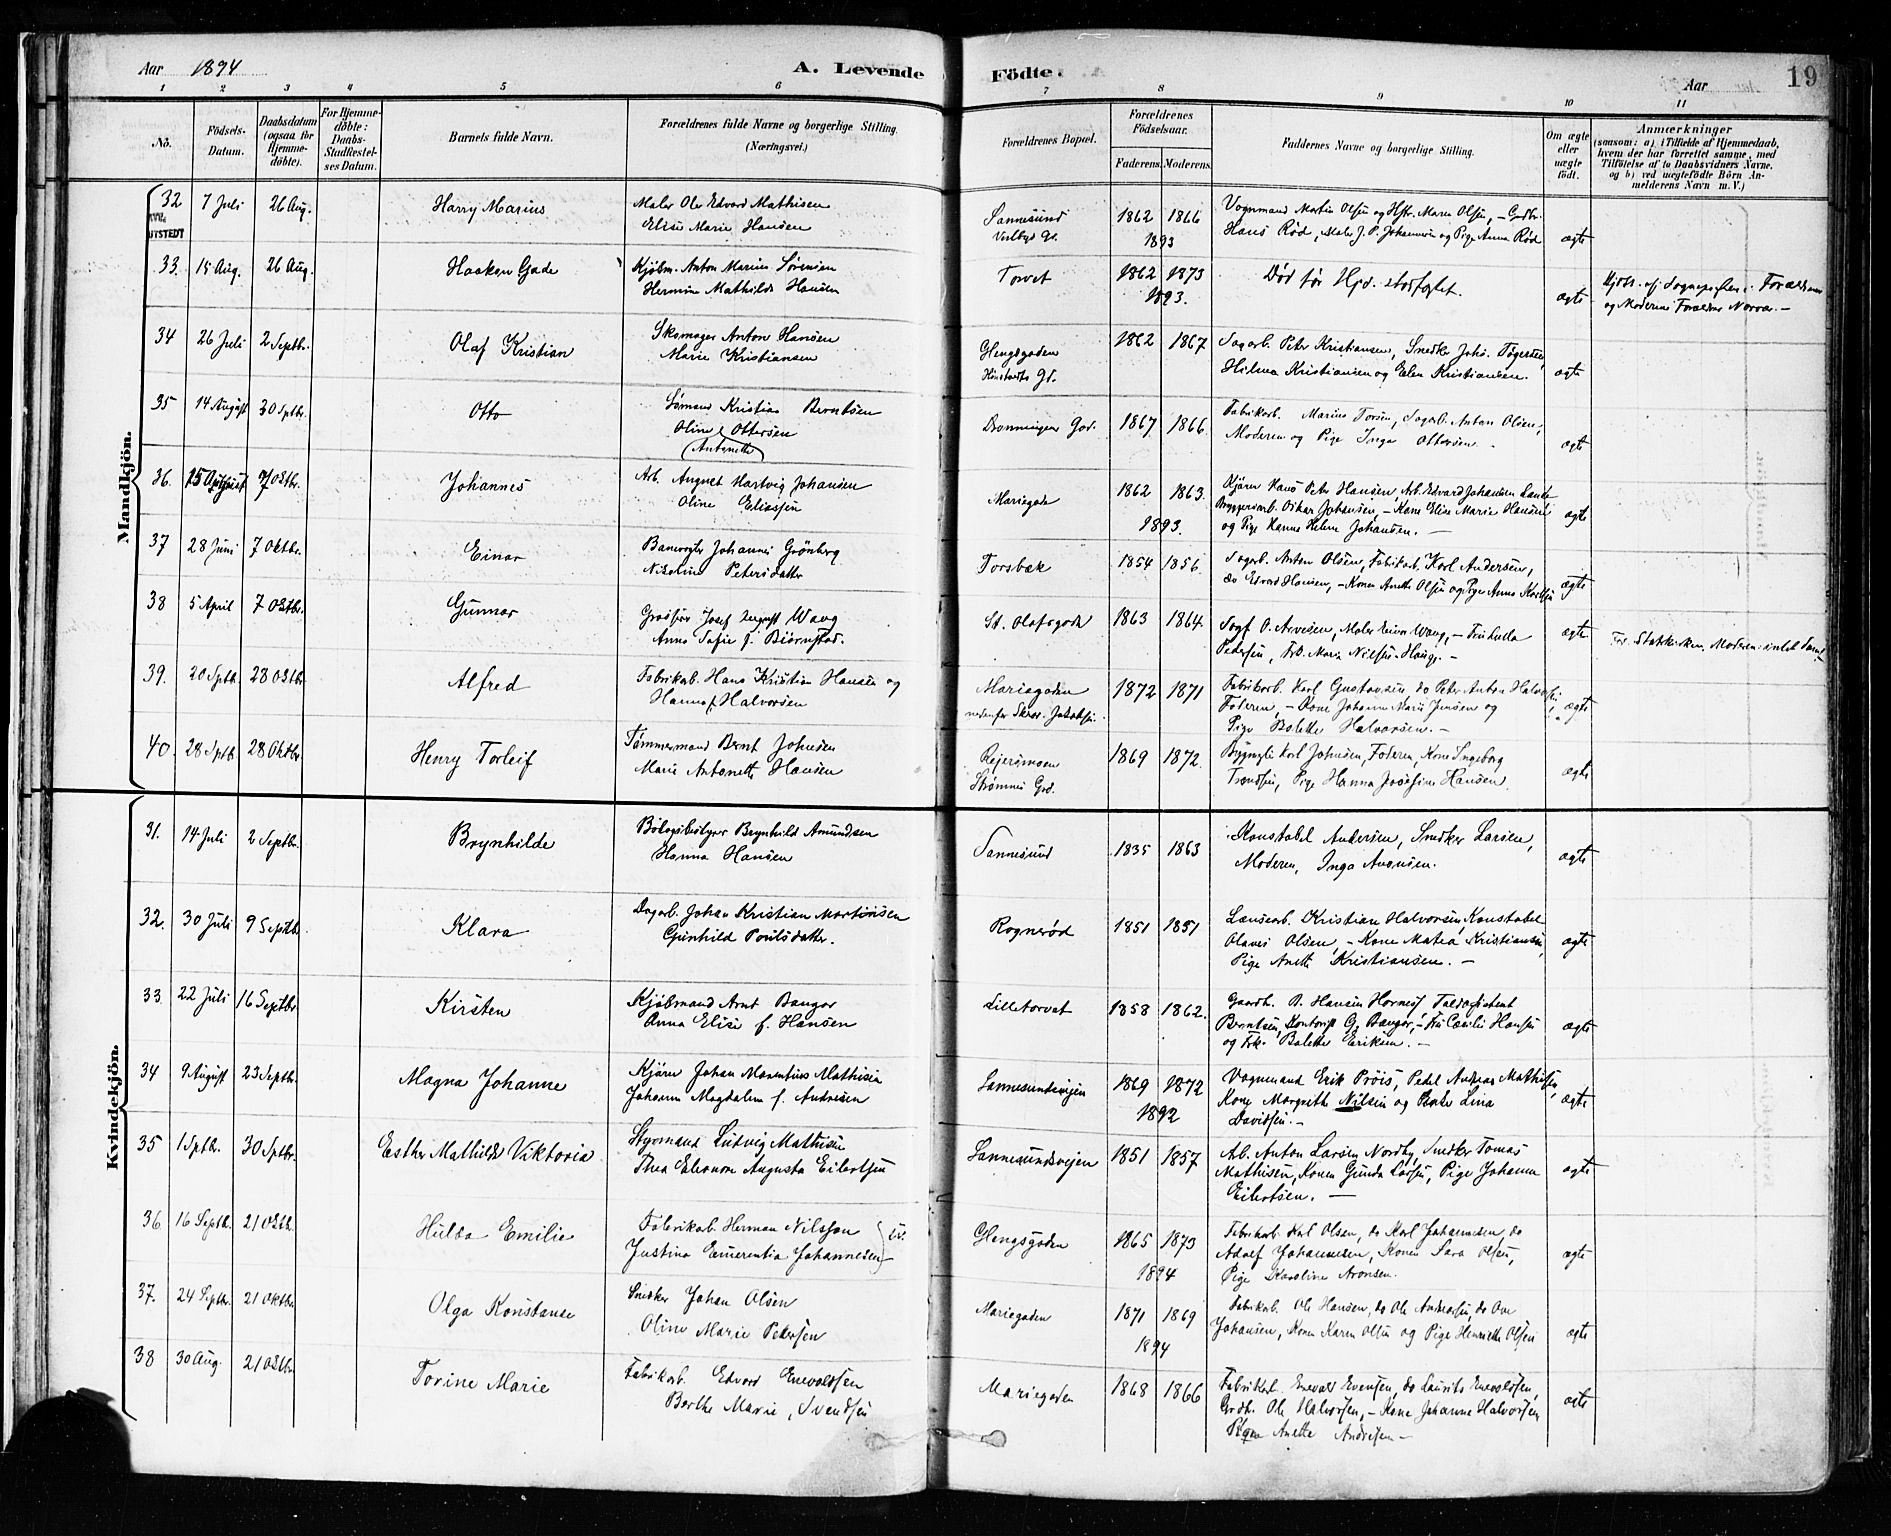 Aar 1894 A. Levende Födte. Aar 19
1 2 3 4 5 6 7 8 9 10 11
No. Födsels-Datum. Daabsdatum (ogsaa for Hjemme-döbte). For Hjemme-döbte: Daabs-Stadfæstel-ses Datum. Barnets fulde Navn. Forældrenes fulde Navne og borgerlige Stilling. (Næringsvei.) Forældrenes Bopæl. Forældrenes Födselsaar. Faderens. Moderens. Faddernes Navne og borgerlige Stilling. Om ægte eller uægte födt. Anmærkninger
(saasom: a) i Tilfælde af Hjemmedaab, hvem der har forrettet samme, med Tilföielse af to Daabsvidners Navne, og b) ved uegtefödte Börn An-melderens Navn m. V.)
Mandkjön.
32 7 Juli 26 Aug. Harry Marius Maler Ole Edvard Mathisen Sannesund 1862 1866 Vognmand Martin Olsen og Hstr. Maren Olsen, - Grdbr.
UTSTEDT Elise Marie Hansen 1893 Hans Rød, Maler J. P. Johannesen og Pige Anna Rød ægte
33. 15 Aug. 26 Aug. Haakon Gade Kjøbm. Anton Marius Sørensen Torvet 1862 1873 Død før Hjd. stadfæstet. ægte
Hermine Mathilde Hansen 1893. og Moderens Forældre
34 26 Juli 2 Septbr. Olaf Kristian Skomager Anton Hansen Glengsgaden 1862 1867 Dagarb. Peter Kristiansen, Snedker Johs.
Marie Kristiansen Gd. Hilma Kristiansen og Elen Kristiansen. ægte
35 14 August 30 Sptbr. Otto Sømand Kristian Berntsen Dronningens Gad. 1867 1866. Fabrikarb. Marius Torsen, Dagarb. Anton Olsen,
Oline Ottersen Moderen og Pige Inga Ottersen. ægte
(Antonette)
36. 15 August 7 Oktbr. Johannes Arb. August Hartvig Johansen Mariegade 1862 1863. Kjører Hans Peter Hansen, Arb. Edvard Johansen Lande
Oline Eliassen 1893. Bryggeriarb. Oskar Johansen, - Kone Elise Marie Hansen ægte
og Pige Hanne Helene Johansen. -
37 28 Juni 7 Oktbr. Einar Banevogter Johannes Grønberg Torsbæk 1854 1856. Dagarb. Anton Olsen, Fabrikarb. Karl Andersen,
Nikoline Petersdatter do Edvard Hansen, - Konen Anette Olsen og Pige Anna ægte
38 5 April 7 Oktbr. Gunnar Grosserer Josef August Wang St. Olafsgade 1863 1864. Sagf. O. Arvesen, Maler Wang, - Fru Hulda ægte
Anna Sofie f. Bjørnstad. Pedersen, Frk. Maria Nielsen-Hauge. -
39. 20 Sptb. 28 Oktbr. Alfred Fabrikarb. Hans Kristian Hansen og Mariegaden 1872 1871 Fabrikarb. Karl Gustavsen, do Peter Anton Halvorsen,
Hanna f. Halvorsen nedenfor Skrædr. Jakobsen. Faderen, - Kone Johanne Marie Jensen og ægte
Pige Bolette Halvorsen. -
40. 28 Sptb. 28 Oktbr. Henry Torleif Tømmermand Bernt Johnsen 1869 1872. Karl Johnsen, Faderen, Kone Ingeborg
Marie Antonette Hansen Strømnes Grd. Trondsen, Pige Hanna Josefine Hansen. ægte
Kvindekjön.
31. 14 Juli 2 Septbr. Brynhilde Bolagsbestyrer Brynhild Amundsen Sannesund 1835 1863 Konstabel Andersen, Snedker Larsen,
Hanna Hansen Moderen, Inga Amundsen. ægte
32. 30 Juli 9 Septbr. Klara Dagarb. Johan Kristian Martinsen Rognerød 1851 1851 Lænsearb. Kristian Halvorsen, Konstabel
Gunhild Poulsdatter. Olaves Olsen, - Kone Matea Kristiansen, ægte
Pige Anette Kristiansen. -
33. 22 Juli 16 Septbr. Kirsten Kjøbmand Arnt Bangor Lilletorvet 1858 1862. Gaardb. B. Hansen Hornes, Toldassistent
Anna Elise f. Hansen Berntsen, Kontorist G. Bangor, - Fru Cæcilie Hansen ægte
og Frk. Bolette Eriksen. -
34 9 August 23 Septbr. Magna Johanne Kjører Johan Marentius Mathisen Sannesundsveien 1869 1872 Vognmand Erik Prøis, Pedel Andreas Mathisen,
Johanne Magdalene f. Andresen 1892 Kone Margrethe Nilsen og Lina ægte
Davidsen. -
35 1 Sptbr. 30 Sptbr. Esther Mathilde Viktoria Styrmand Ludvig Mathisen Sannesundsvejen 1851 1857 Ab. Anton Larsen Nordby, Snedker Tomas
Thea Eleonore Augusta Eilertsen Mathisen, Konen Gunda Larsen, Pige Johanne ægte
Eilertsen. -
36. 16 Septbr. 21 Oktb. Hulda Emilie Fabrikarb. Herman Nilssøn Glengsgaden 1865 1873 Fabrikarb. Karl Olsen, do Karl Johannesen, do
Justina Emerentia Johannesen 1894 Adolf Johannesen, Konen Sara Olsen, ægte
Pige Karoline Aronsen.
37. 24 Septbr. 21 Oktbr. Olga Konstanse Snedker Johan Olsen Mariegaden 1871 1869 Fabrikarb. Ole Hansen, do Ole Andersen, do Ove
Oline Marie Petersen 1894 Johansen, Konen Karen Olsen og Pige Henriette Olsen ægte
38 30 Aug. 21 Oktbr. Torine Marie Fabrikarb. Edvard Enevaldsen Mariegaden 1868 1866 Fabrikarb. Enevald Evensen, do Laurits Enevoldsen,
Berthe Marie Svendsen Grdb. Ole Halvorsen, - Kone Johanne Halvorsen ægte
Pigen Anette Andresen -